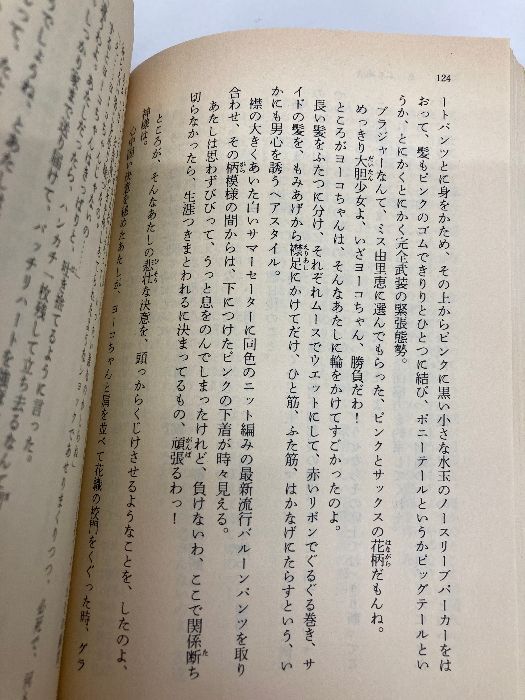 124
ートパンツとに身をかため、その上からピンクに黒い小さな水玉のノースリーブパーカーをは
おって、髪もピンクのゴムできりりとひとつに結び、ポニーテールというかピッグテールとい
うか、とにかくとにかく完全武装の緊張態勢。
ブラジャーなんて、ミス由里恵に選んでもらった、ピンクとサックスの花柄だもんね。
めっきり大胆少女よ、いざヨーコちゃん、勝負だわ！
ところがヨーコちゃんは、そんなあたしに輪をかけてすごかったのよ。
長い髪をふたつに分け、それぞれムースでウエットにして、赤いリボンでぐるぐる巻き、サ
イドの髪を、もみあげから襟足にかけてだけ、ひと筋、ふた筋、はかなげにたらすという、い
かにも男心を誘うヘアスタイル。
襟の大きくあいた白いサマーセーターに同色のニット編みの最新流行バルーンパンツを取り
合わせ、その柄模様の間からは、下につけたピンクの下着が時々見える。
あたしは思わずびびって、うっと息をのんでしまったけれど、負けないわ、ここで関係断ち
切らなかったら、生涯つきまとわれるに決まってるもの、頑張るわっ！
ところが、そんなあたしの悲壮な決意を、頭っからくじけさせるようなことを、したのよ、
神様は。
心中固く決意を秘めたあたしが、ヨーコちゃんと肩を並べて花織の校門をくぐった時、グラ